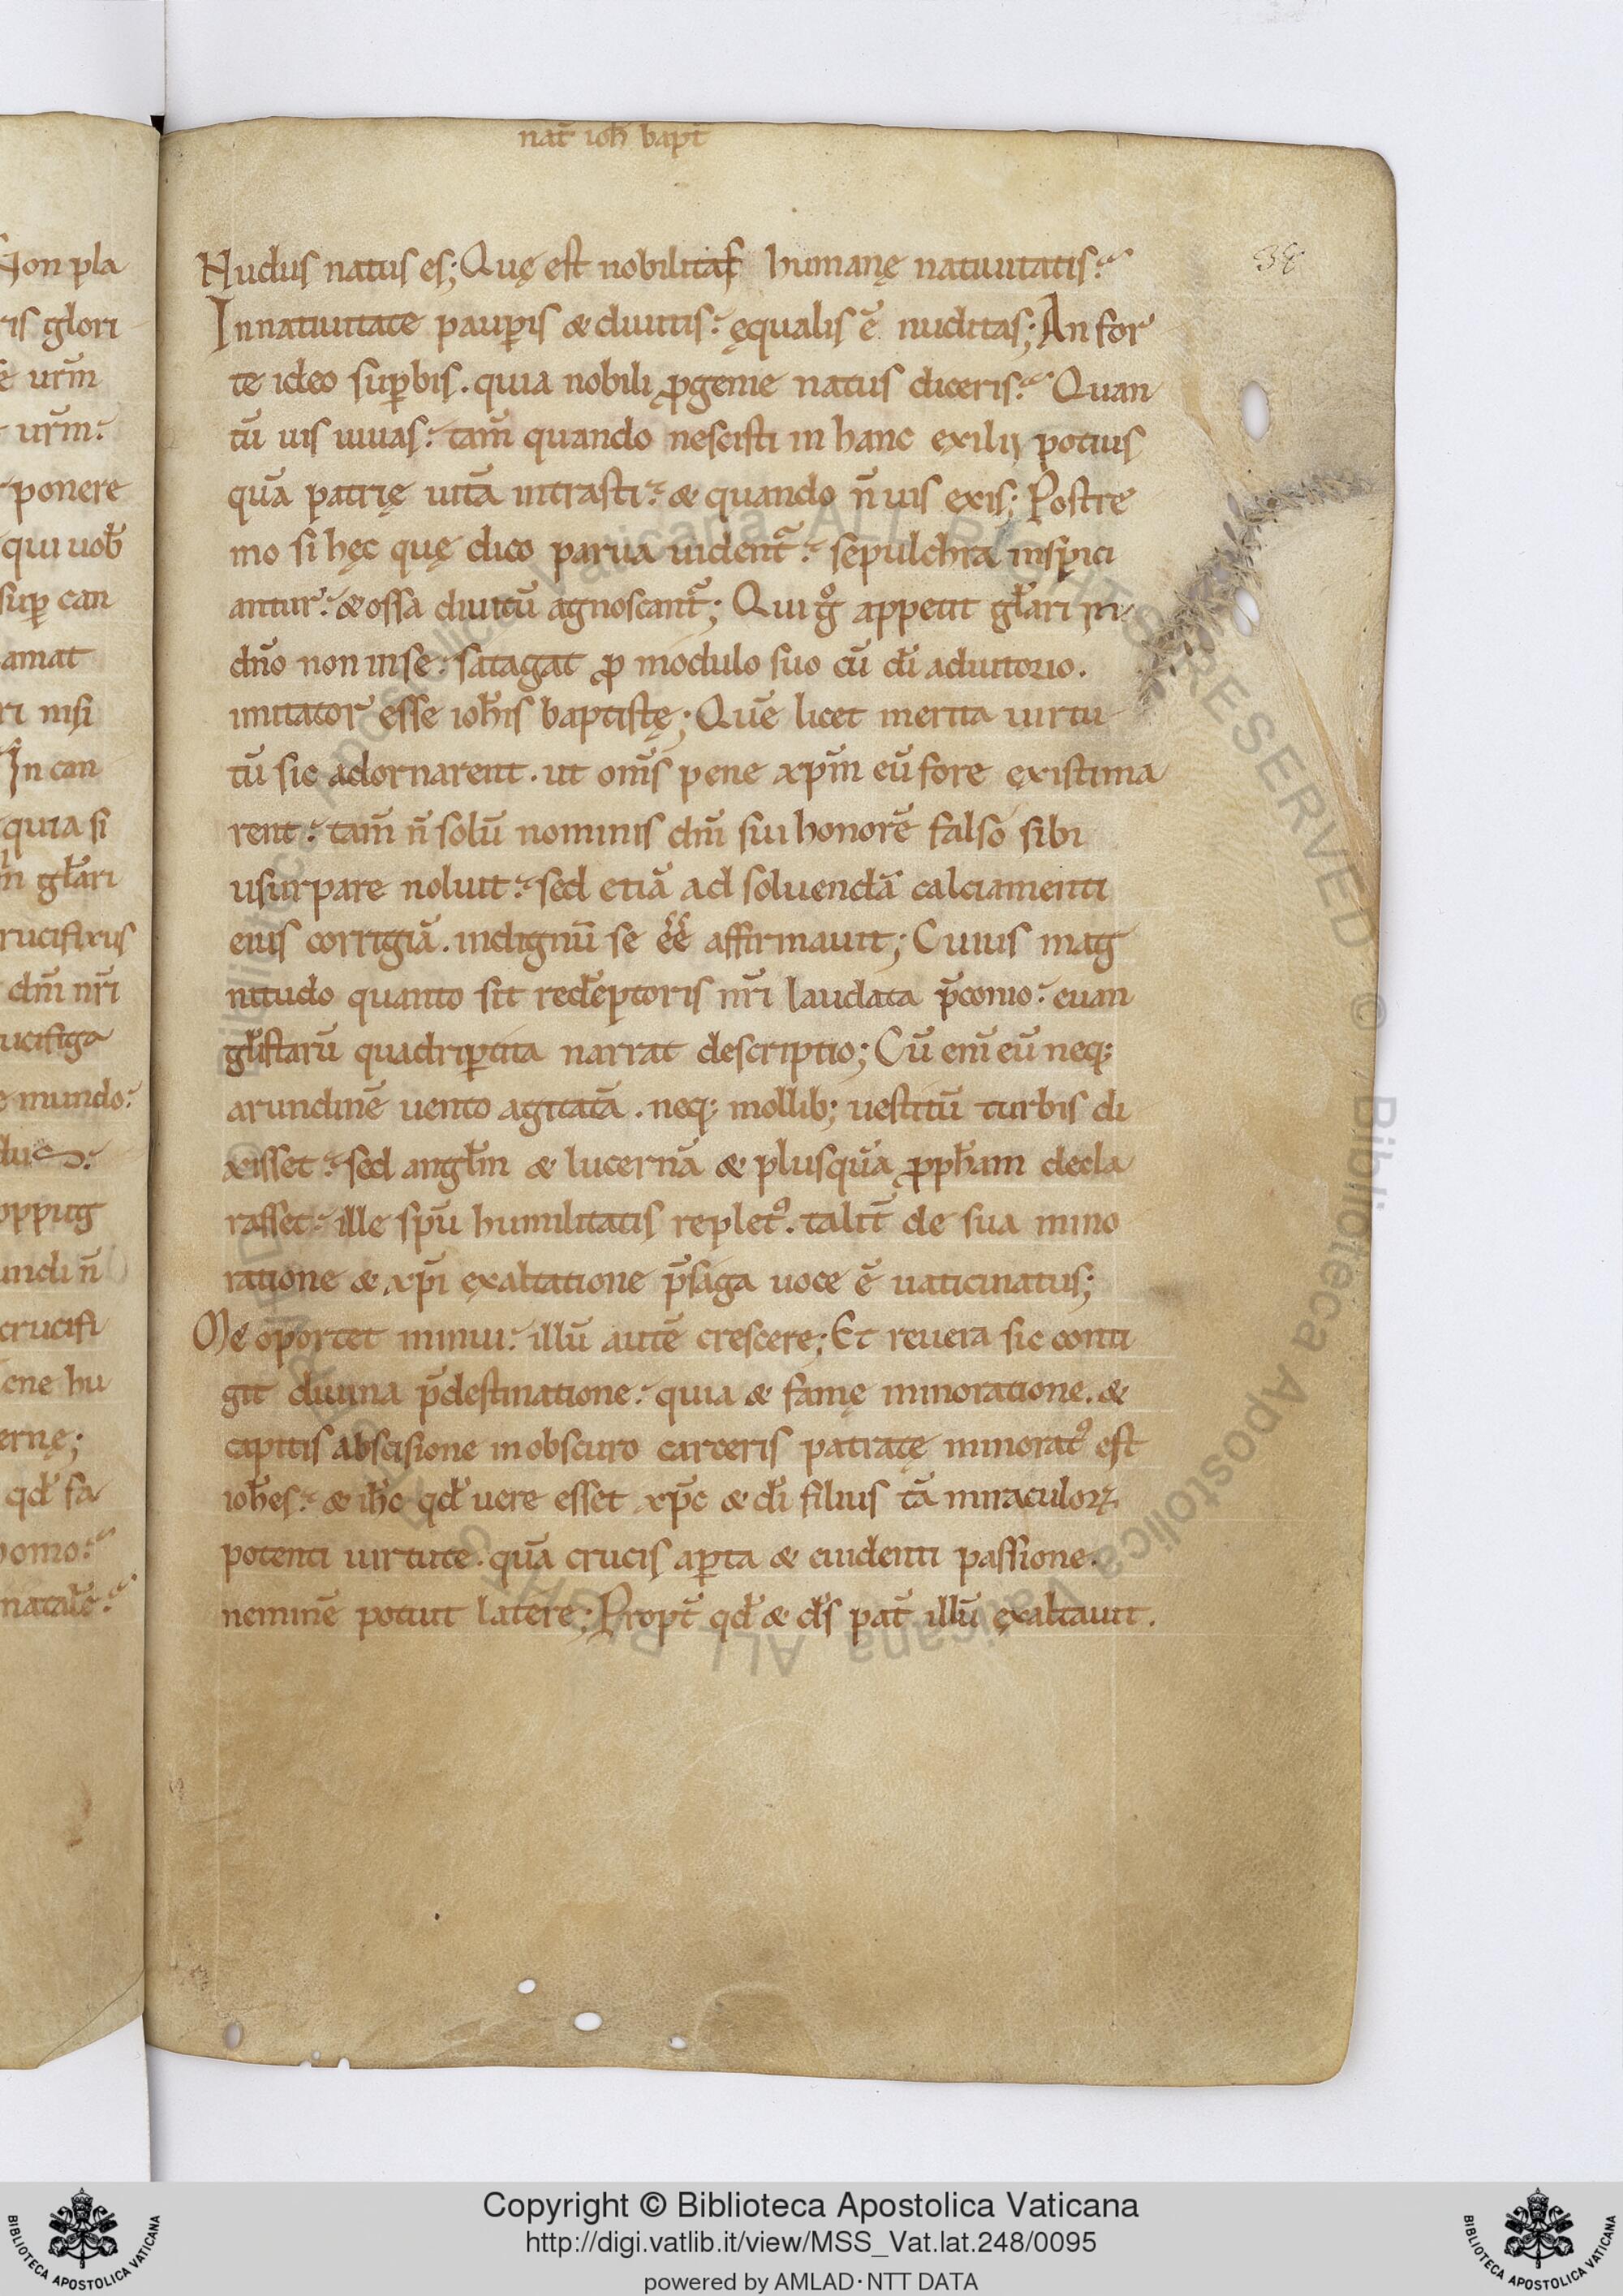 nat̄ ioh̄ bapt̄
38
Nudus natus es; Quę est nobilitas humanę natiuitatis?
Innatiuitate paup̄is & diuitis? ęqualis ē nuditas; An for
te ideo sup̄bis. quia nobili ꝓgenie natus diceris? Quan
tū uis uiuas: tam̄ quando nescisti in hanc exilii potius
quā patrię uitā intrasti: & quando n̄ uis exis; Postre
mo si hęc quę dico parua uident̄: sepulchra inspici
antur: & ossa diuitū agnoscant̄; Qui gͦ appetit gl̄ari in
dn̄o non inse: satagat ꝓ modulo suo cū dī adiutorio.
imitator esse ioh̄is baptistę; Quē licet merita uirtu
tū sic adornarent. ut om̄s pene xp̄m eū fore existima
rent: tam̄ n̄ solū nominis dn̄i sui honorē falso sibi
usurpare noluit: sed etiā ad soluendā calciamenti
eius corrigiā. indignū se ēē affirmauit; Cuius mag
nitudo quanto sit redēptoris nr̄i laudata p̄conio: euan
gl̄istarū quadrip̄tita narrat descriptio; Cū eni eū neq;
arundinē uento agitatā. neq; mollib; uestitū turbis di
xisset: sed angl̄m & lucernā & plusquā ꝓph̄am decla
rasset: ille sp̄u humilitatis replet᷒. talit̄ de sua mino
ratione & xp̄i exaltatione p̄saga uoce ē uaticinatus;
Me oportet minui: illū autē crescere; Et reuera sic conti
git diuina p̄destinatione: quia & famę minoratione. &
capitis abscisione in obscuro carceris patratę minorat᷒ est
ioh̄es: & ih̄c qd̄ uere esset xp̄c & dī filius tā miraculoꝝ
potenti uirtute. quā crucis ap̄ta & euidenti passione.
neminē potuit latere; Propt̄ qd̄ & ds̄ pat̄ illū exaltauit.
Copyright © Biblioteca Apostolica Vaticana
http://digi.vatlib.it/view/MSS_Vat.lat.248/0095
powered by AMLAD·NTT DATA